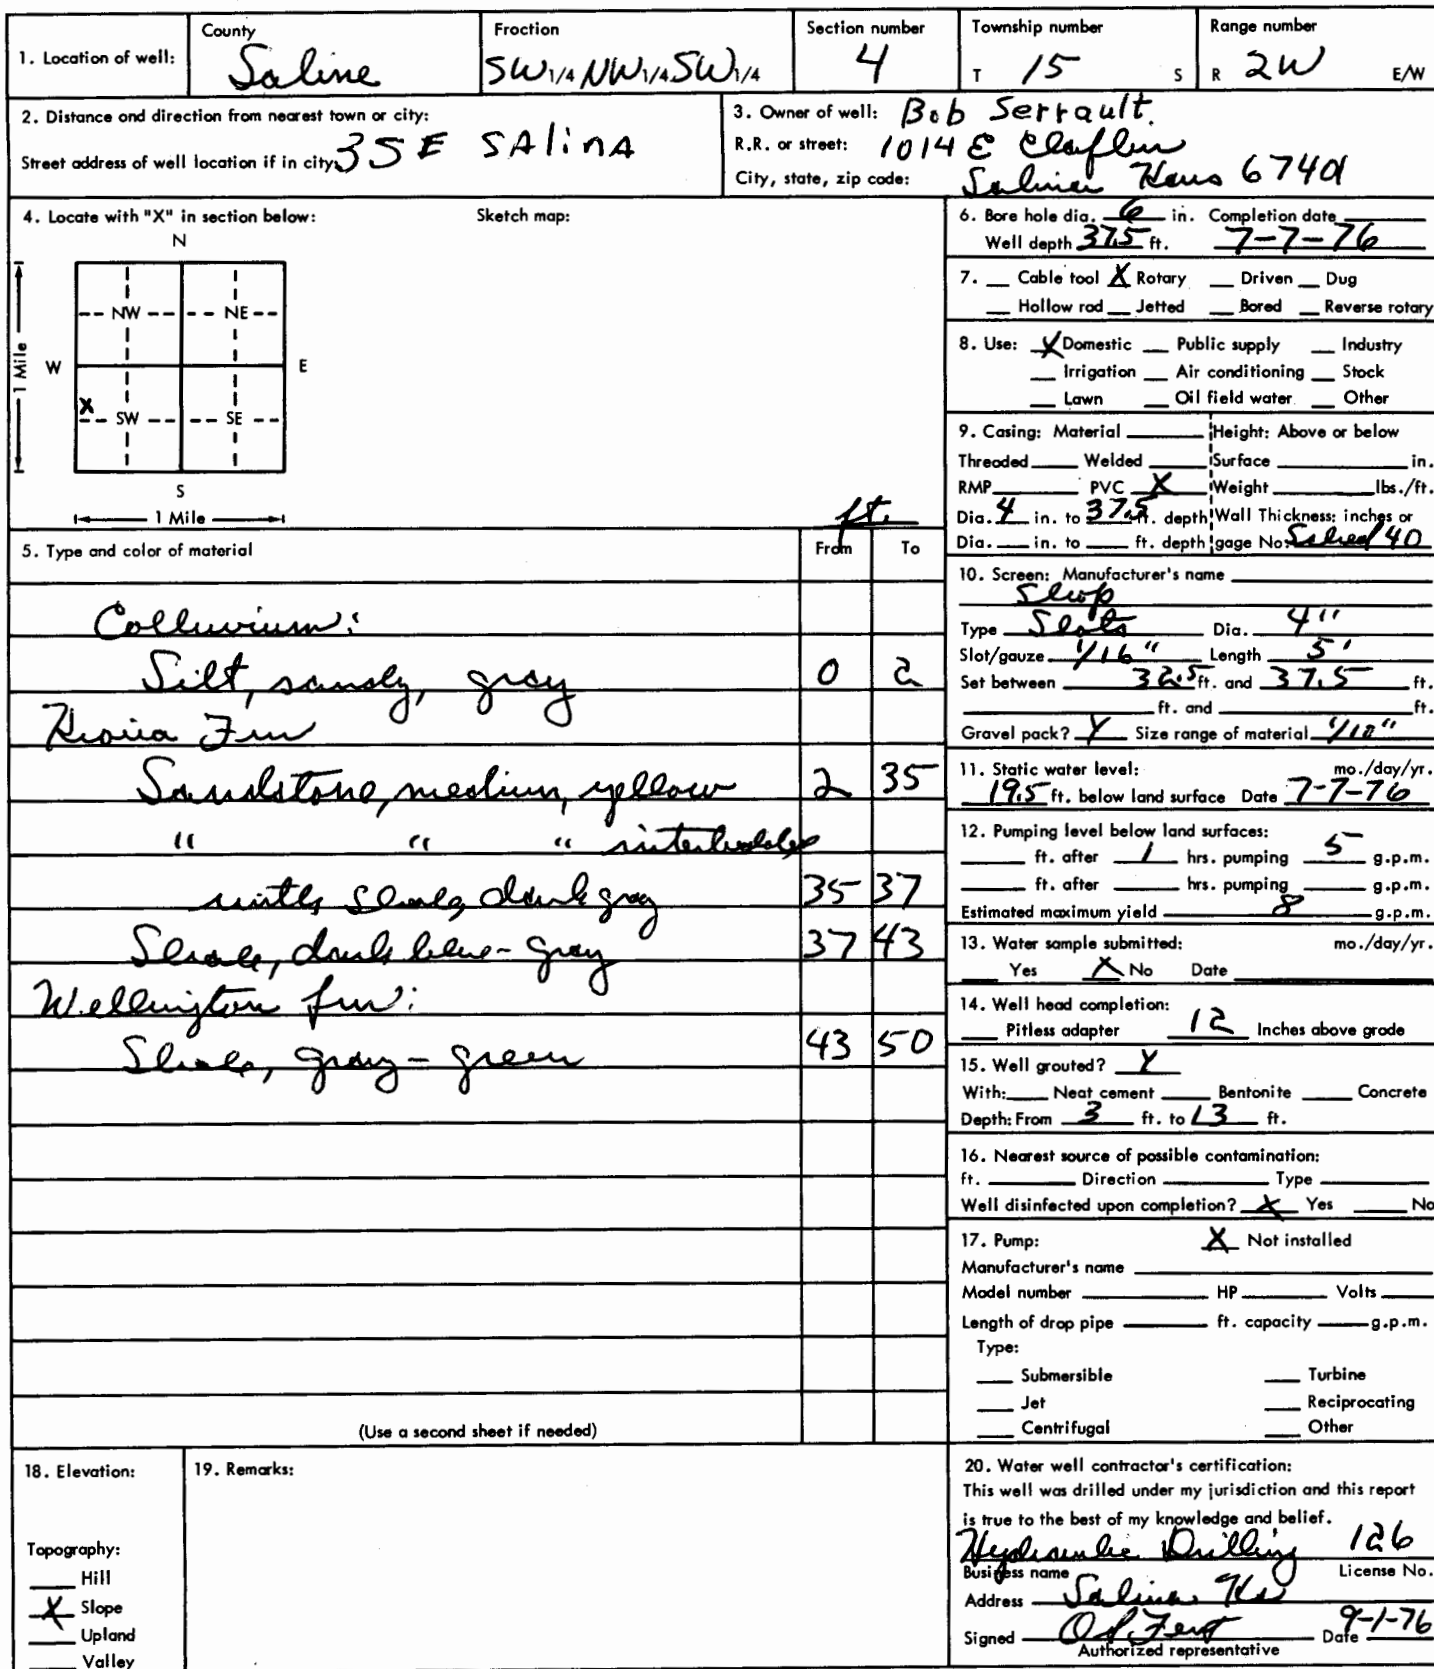 County Fraction Section number Township number Range number
1. Location of well: Saline SW 1/4 NW 1/4 SW 1/4 4 T 15 S R 2W E/W
2. Distance and direction from nearest town or city: 3 S E SAlinA
Street address of well location if in city:
3. Owner of well: Bob Serrault.
R.R. or street: 1014 E Claflin
City, state, zip code: Salina Kans 67401
4. Locate with "X" in section below: Sketch map:
N
NW NE
W E
1 Mile
X
SW SE
S
1 Mile
ft.
5. Type and color of material From To
Colluvium:
Silt, sandy, gray 0 2
Kiowa Fm
Sandstone, medium, yellow 2 35
" " " interbedded
with shale, dark gray 35 37
Shale, dark blue-gray 37 43
Wellington fm:
Shale, gray-green 43 50
(Use a second sheet if needed)
6. Bore hole dia. 6 in. Completion date
Well depth 37.5 ft. 7-7-76
7. __ Cable tool X Rotary __ Driven __ Dug
__ Hollow rod __ Jetted __ Bored __ Reverse rotary
8. Use: X Domestic __ Public supply __ Industry
__ Irrigation __ Air conditioning __ Stock
__ Lawn __ Oil field water __ Other
9. Casing: Material ____ Height: Above or below
Threaded ____ Welded ____ Surface ____ in.
RMP ____ PVC X Weight ____ lbs./ft.
Dia. 4 in. to 37.5 ft. depth Wall Thickness: inches or
Dia. __ in. to __ ft. depth gage No. Sched 40
10. Screen: Manufacturer's name ____
Shop
Type Slots Dia. 4"
Slot/gauze 1/16" Length 5'
Set between 32.5 ft. and 37.5 ft.
____ ft. and ____ ft.
Gravel pack? Y Size range of material 1/10"
11. Static water level: mo./day/yr.
19.5 ft. below land surface Date 7-7-76
12. Pumping level below land surfaces:
____ ft. after 1 hrs. pumping 5 g.p.m.
____ ft. after ____ hrs. pumping ____ g.p.m.
Estimated maximum yield 8 g.p.m.
13. Water sample submitted: mo./day/yr.
__ Yes X No Date ____
14. Well head completion:
__ Pitless adapter 12 Inches above grade
15. Well grouted? Y
With: __ Neat cement __ Bentonite __ Concrete
Depth: From 3 ft. to 13 ft.
16. Nearest source of possible contamination:
ft. ____ Direction ____ Type ____
Well disinfected upon completion? X Yes __ No
17. Pump: X Not installed
Manufacturer's name ____
Model number ____ HP ____ Volts ____
Length of drop pipe ____ ft. capacity ____ g.p.m.
Type:
__ Submersible __ Turbine
__ Jet __ Reciprocating
__ Centrifugal __ Other
18. Elevation:
Topography:
__ Hill
X Slope
__ Upland
__ Valley
19. Remarks:
20. Water well contractor's certification:
This well was drilled under my jurisdiction and this report
is true to the best of my knowledge and belief.
Hydraulic Drilling 126
Business name License No.
Address Salina Ks
Signed Date 9-1-76
Authorized representative